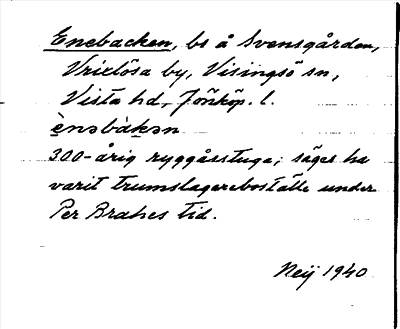 Enebacken, bs å Svensgården,
Vrixlösa by, Visingsö sn,
Vista hd, Jönköp. l.
ènəbàkən
300-årig ryggåsstuga; säges ha
varit trumslagareboställe under
Per Brahes tid.
Neij 1940